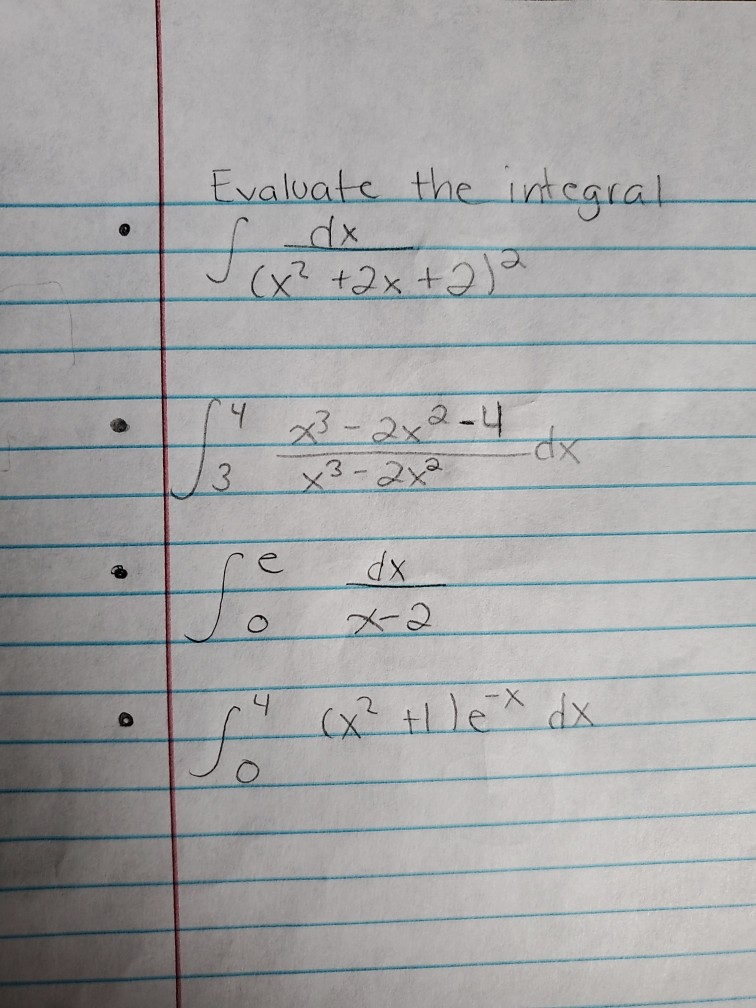 Evaluate the integral
• ∫ dx / (x² + 2x + 2)²
• ∫₃⁴ (x³ - 2x² - 4) / (x³ - 2x²) dx
• ∫₀ᵉ dx / (x - 2)
• ∫₀⁴ (x² + 1)e⁻ˣ dx